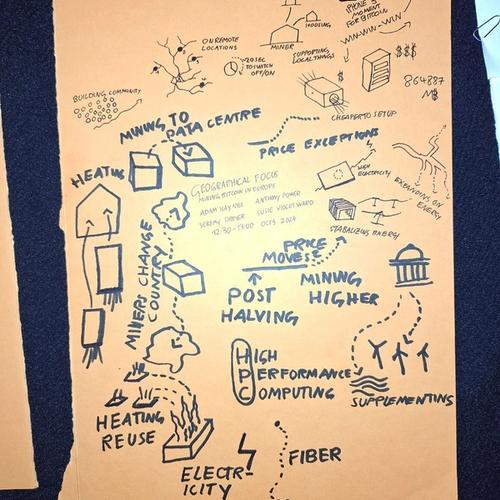 PHONE'S
MOMENT
FOR BITCOIN
HOUSING
ON REMOTE
LOCATIONS
MINER
WIN-WIN-WIN
SUPPORTING
LOCAL THINGS
$$$
20 SEC
TO SWITCH
OFF/ON
$
864887
M$
BUILDING COMMUNITY
CHEAPER TO SETUP
MINING TO
DATA CENTRE
PRICE EXCEPTIONS
HEATING
HIGH
ELECTRICITY
EXPANDING ON
ENERGY
GEOGRAPHICAL FOCUS
MINING BITCOIN IN EUROPE
ADAM HAYNES ANTHONY POWER
JEREMY DREIER SUSIE VIOLET WARD
12:30 - 13:00 OCT 9 2024
STABALIZING ENERGY
MINERS CHANGE
COUNTRY
PRICE
MOVES?
POST
HALVING
MINING
HIGHER
HIGH
PERFORMANCE
COMPUTING
SUPPLEMENTING
HEATING
REUSE
ELECTR-
ICITY
FIBER